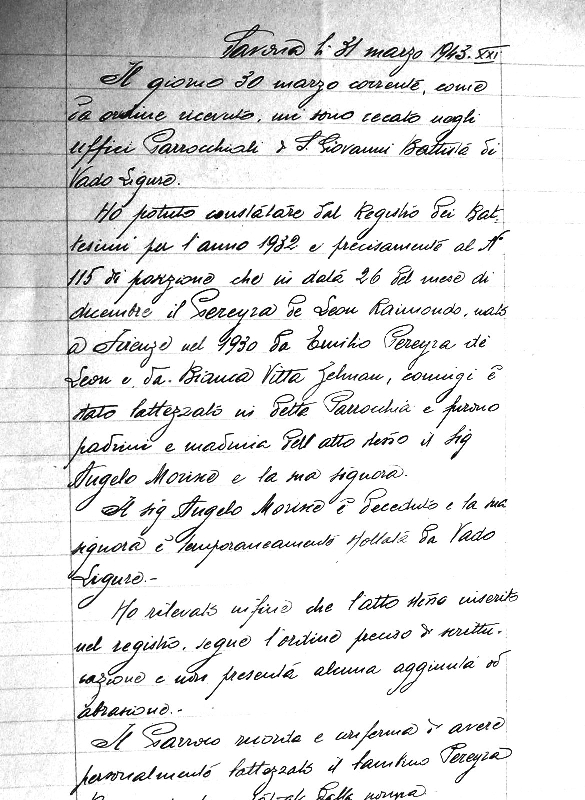 Savona li 31 marzo 1943. XXI
Il giorno 30 marzo corrente, come
da ordine ricevuto, mi sono recato negli
uffici Parrocchiali di S. Giovanni Battista di
Vado Ligure.
Ho potuto constatare dal Registro dei Bat-
tesimi per l'anno 1932 e precisamente al N°
115 di posizione che in data 26 del mese di
dicembre il Pereyra de Leon Raimondo, nato
a Firenze nel 1930 da Emilio Pereyra de
Leon e da Bianca Vitta Zelman, coniugi è
stato battezzato in detta Parrocchia e furono
padrini e madrina dell'atto stesso il sig
Angelo Morixe e la sua signora.
Il sig Angelo Morixe è deceduto e la sua
signora è temporaneamente sfollata da Vado
Ligure.-
Ho rilevato infine che l'atto stesso inserito
nel registro, segue l'ordine preciso di scrittu-
razione e non presenta alcuna aggiunta od
abrasione.-
Il Parroco ricorda e conferma di avere
personalmente battezzato il bambino Pereyra
dalla nonna